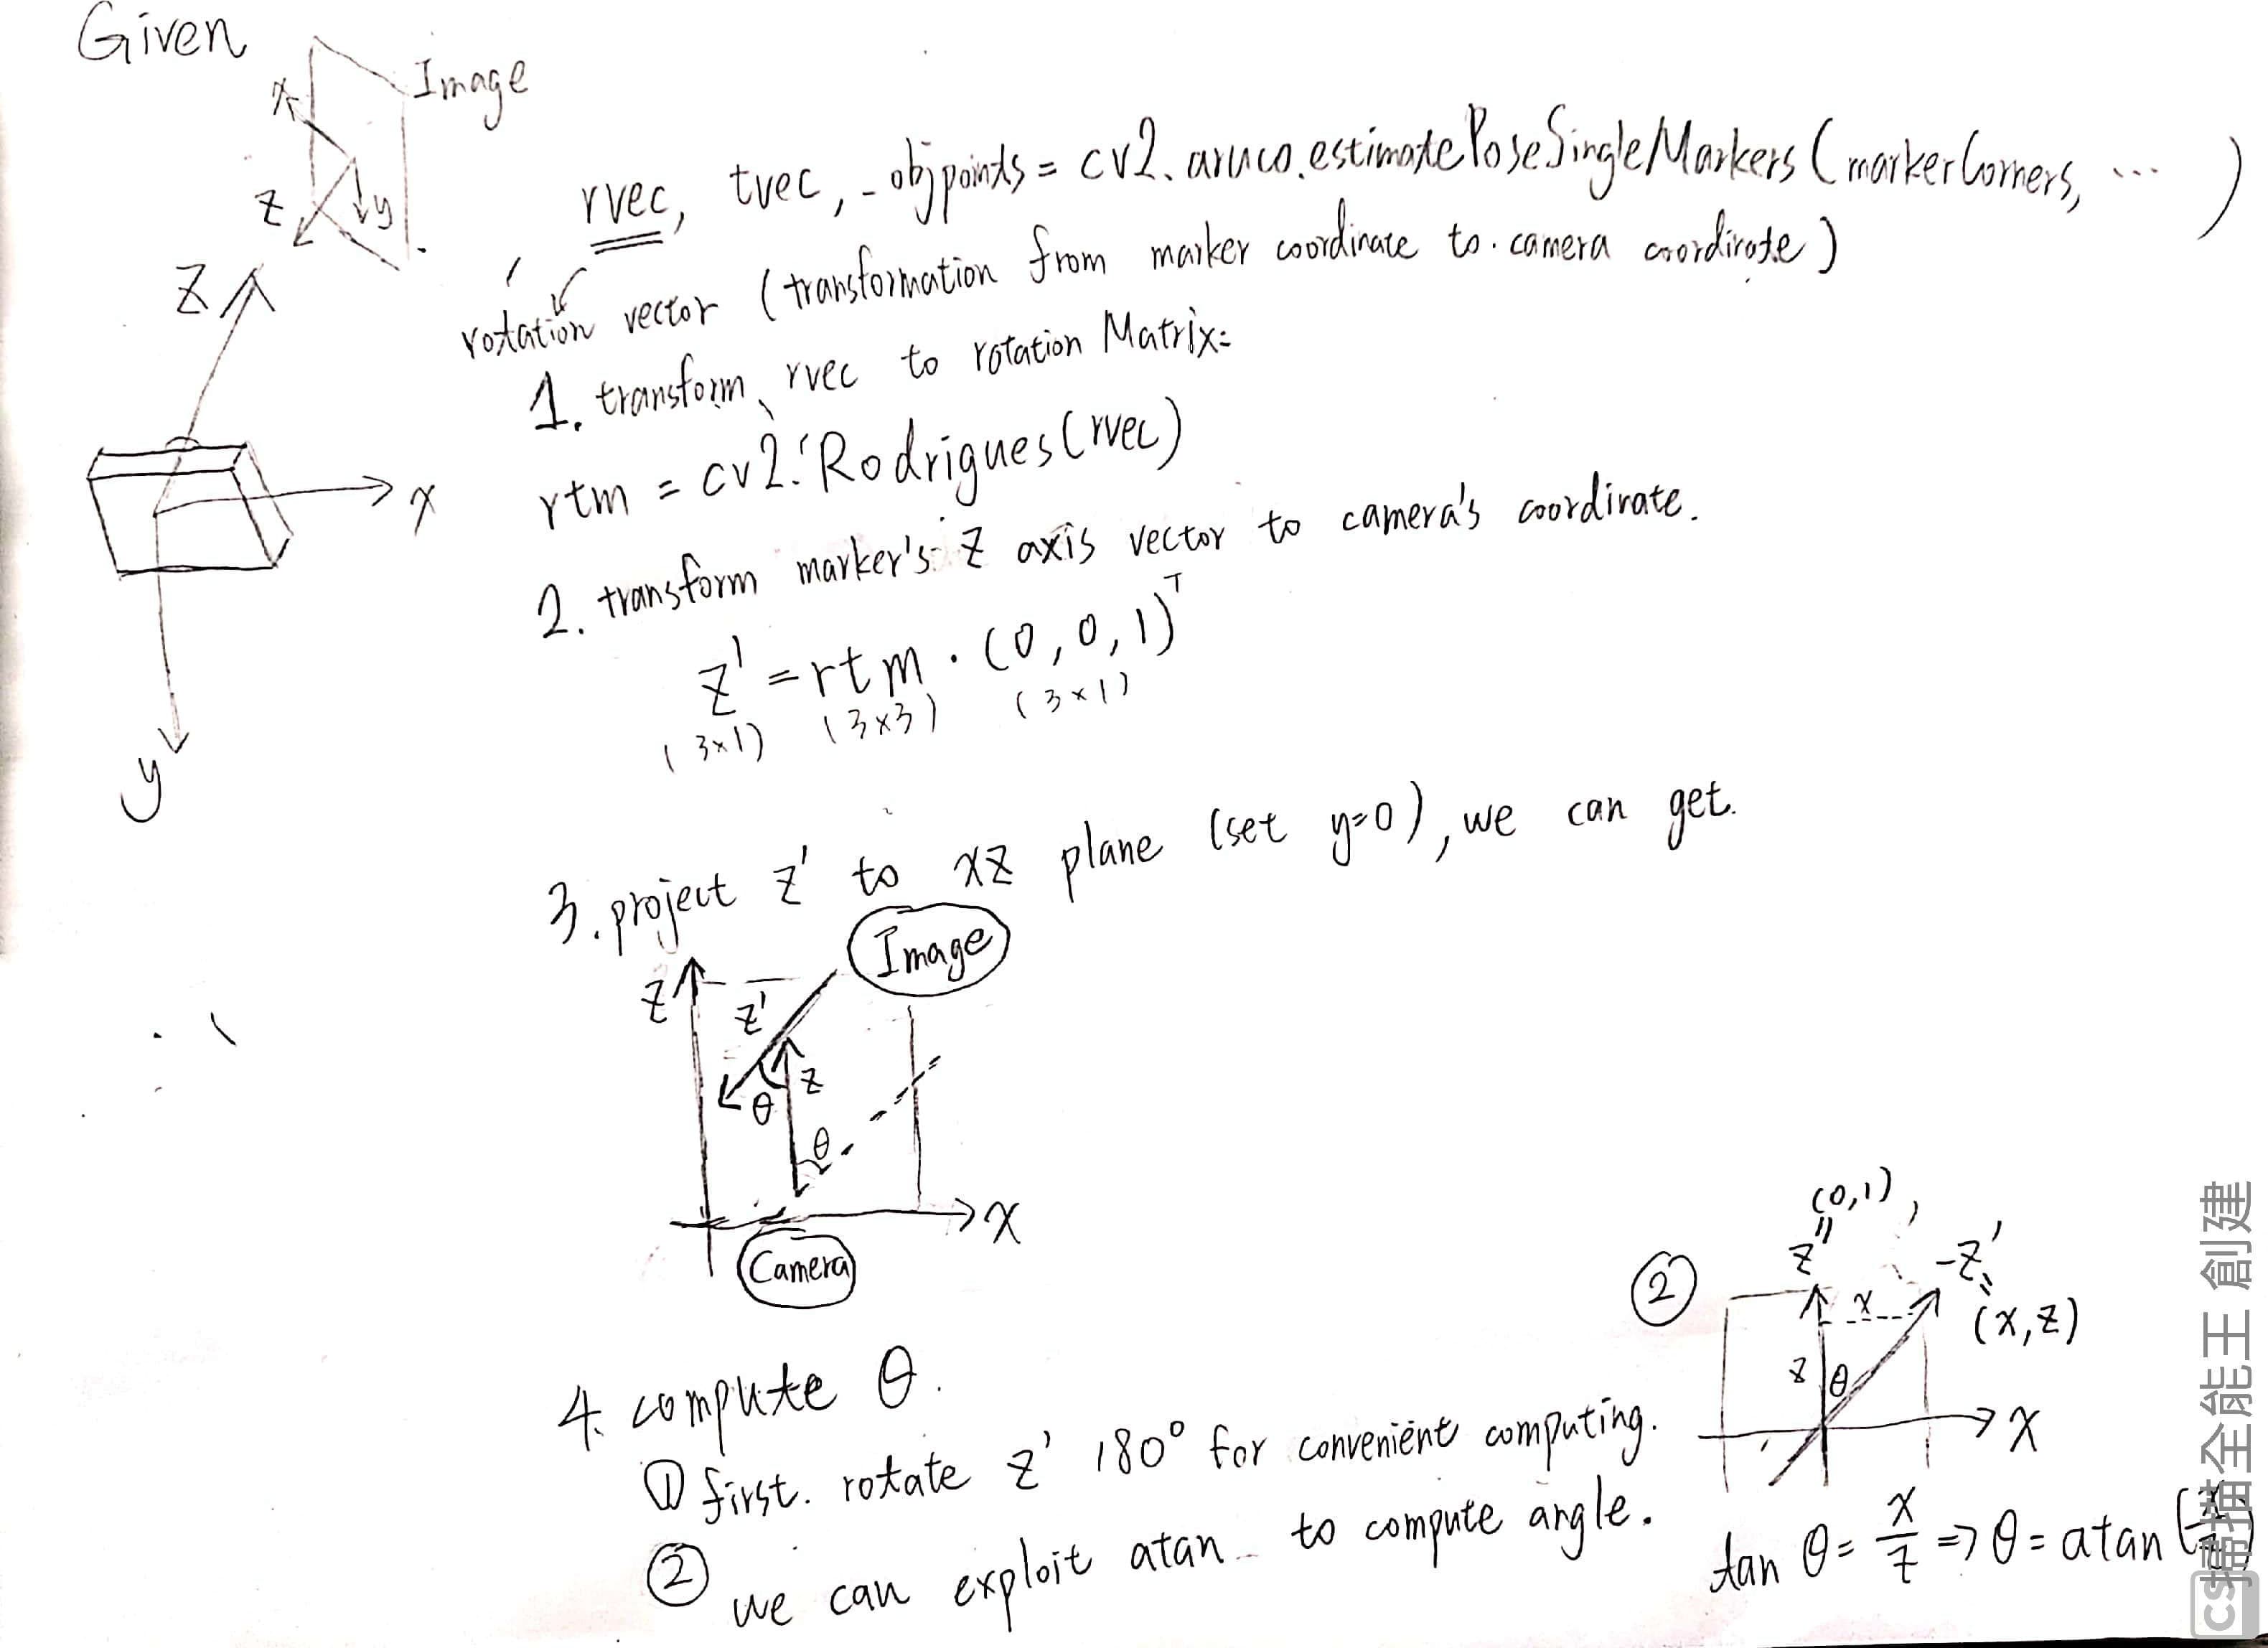 Given
Image
x
z
y
rvec, tvec, _objpoints = cv2.aruco.estimatePoseSingleMarkers(markerCorners, ... )
rotation vector (transformation from marker coordinate to camera coordinate)
z
x
y
1. transform rvec to rotation Matrix:
rtm = cv2.Rodrigues(rvec)
2. transform marker's z axis vector to camera's coordinate.
z' = rtm · (0, 0, 1)^T
(3×1) (3×3) (3×1)
3. project z' to xz plane (set y=0), we can get.
Image
z
z'
θ
z
θ
x
Camera
4. compute θ.
① first. rotate z' 180° for convenient computing.
② we can exploit atan to compute angle.
②
(0,1)
z
-z'
(x,z)
x
z
θ
x
tan θ = x/z => θ = atan(x/z)
CS 掃描全能王 創建